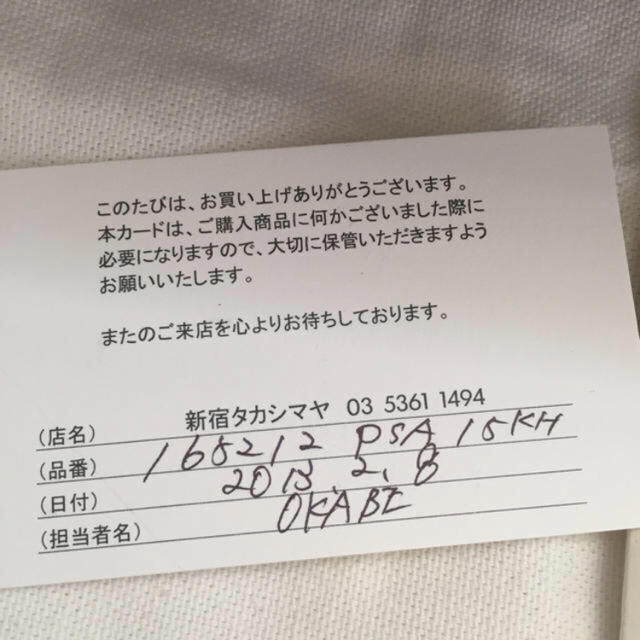 このたびは、お買い上げありがとうございます。
本カードは、ご購入商品に何かございました際に
必要になりますので、大切に保管いただきますよう
お願いいたします。
またのご来店を心よりお待ちしております。
(店名) 新宿タカシマヤ 03 5361 1494
(品番) 165212 PSA 15KH
(日付) 2013.2.8
(担当者名) OKABE